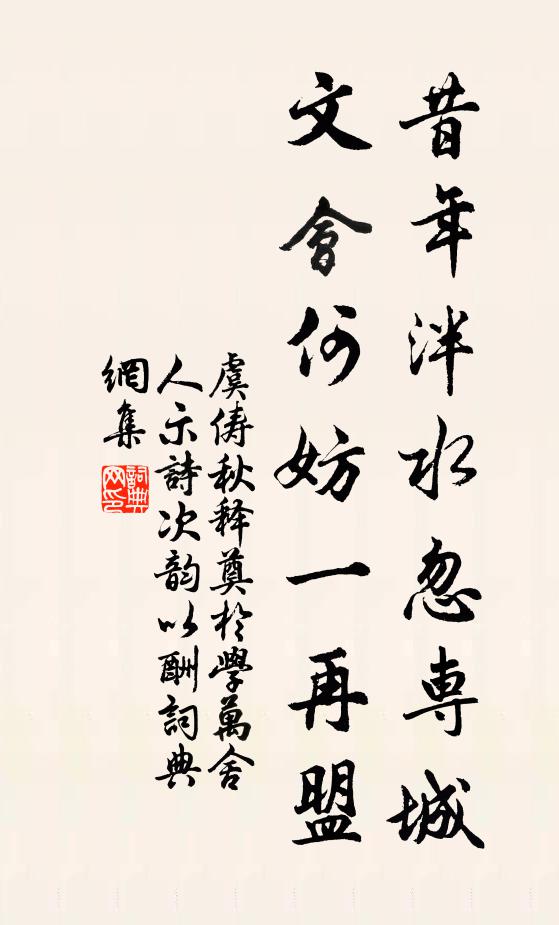 昔年泮水忽専城
文會何妨一再盟
虞俦秋释奠於學萬舍
人示詩次韵以酬詞典
網集
詞典
网印